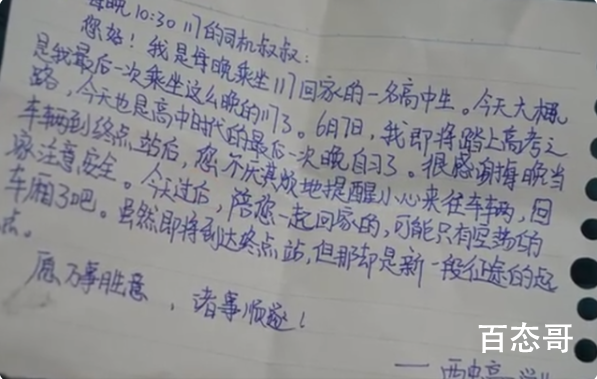 每晚10:30 117的司机叔叔：
您好！我是每晚乘坐117回家的一名高中生。今天大概
是我最后一次乘坐这么晚的117了。6月7日，我即将踏上高考之
路，今天也是高中时代的最后一次晚自习了。很感谢每晚当
车辆到终点站后，您不厌其烦地提醒小心来往车辆，回
家注意安全。今天过后，陪您一起回家的，可能只有空荡的
车厢了吧。虽然即将到达终点站，但那却是新一段征途的起
点。
愿万事胜意，诸事顺遂！
百态哥